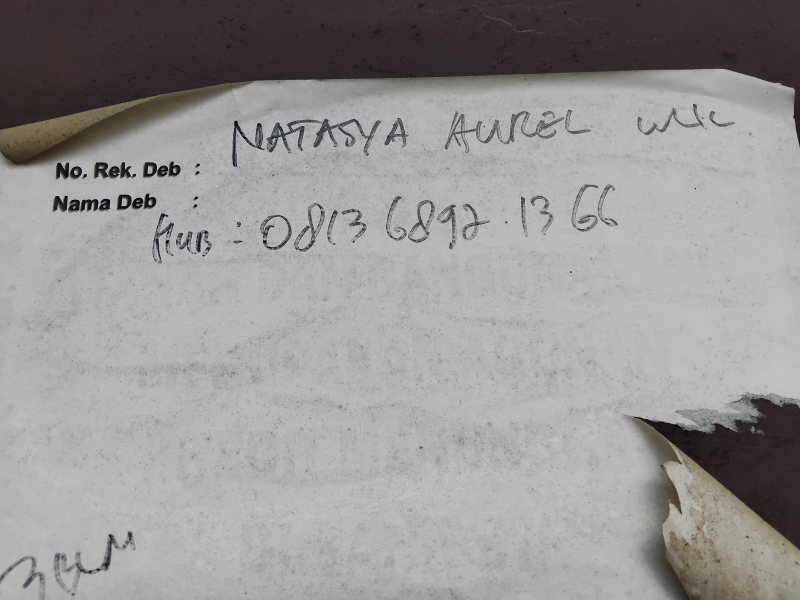 NATASYA AUREL
No. Rek. Deb :
Nama Deb :
Hub : 0813 6892 1366